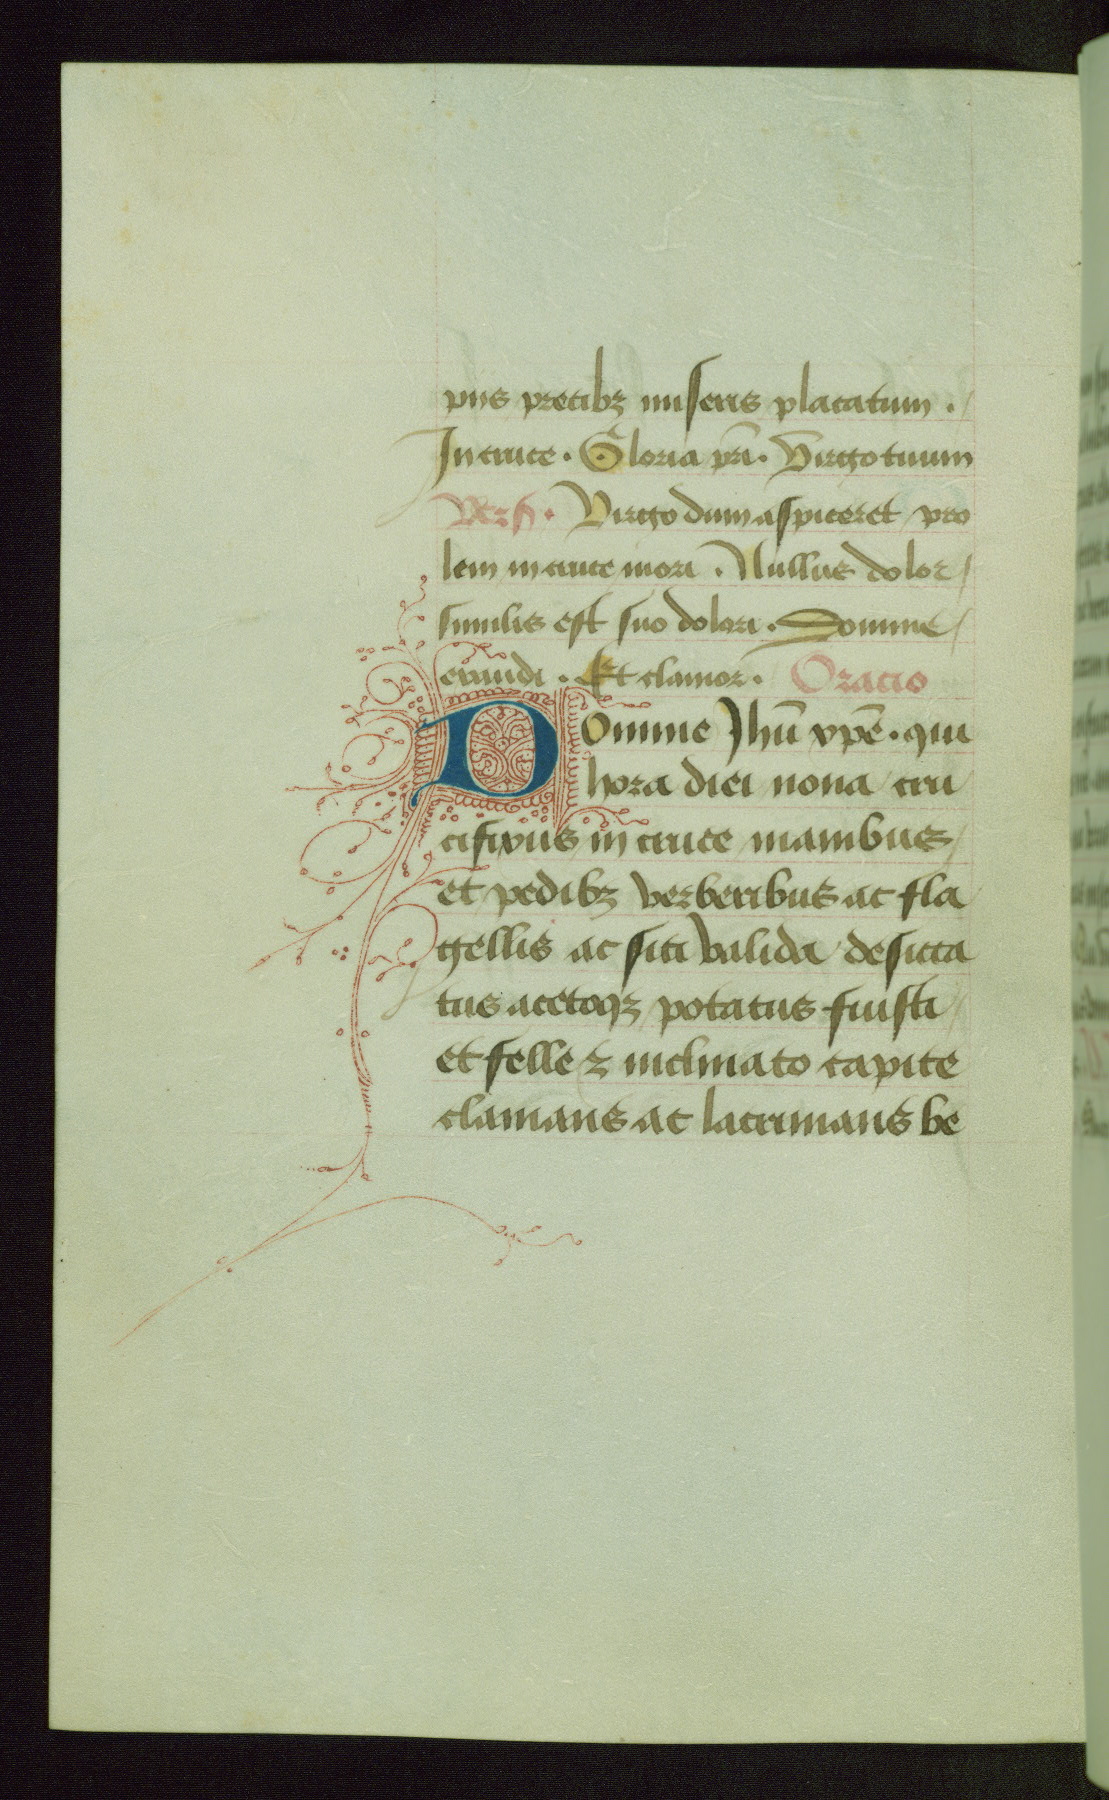 pijs precibꝫ miseris placatum ·
In cruce · Gloria pr̄i · Virgo tuum
Virgo dum aspiceret pro
lem in cruce mori · Nullus dolor
similis est suo dolori · Domine
exaudi · Et clamor · Oracio
Domine Jhū xp̄e · qui
hora diei nona cru
cifixus in cruce manibus
et pedibꝫ verberibus ac fla
gellis ac siti valida desicca
tus acetoqꝫ potatus fuisti
et felle ⁊ inclinato capite
clamans ac lacrimans be